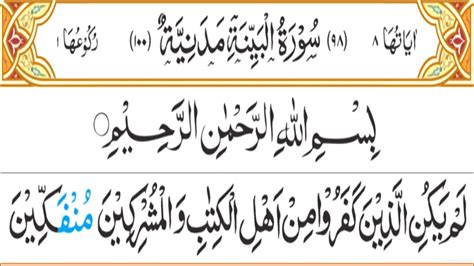 اٰيَاتُهَا ٨ (٩٨) سُوْرَةُ الْبَيِّنَةِ مَدَنِيَّةٌ (١٠٠) رُكُوْعُهَا ١
بِسْمِ اللهِ الرَّحْمٰنِ الرَّحِيْمِ
لَمْ يَكُنِ الَّذِيْنَ كَفَرُوْا مِنْ اَهْلِ الْكِتٰبِ وَالْمُشْرِكِيْنَ مُنْفَكِّيْنَ